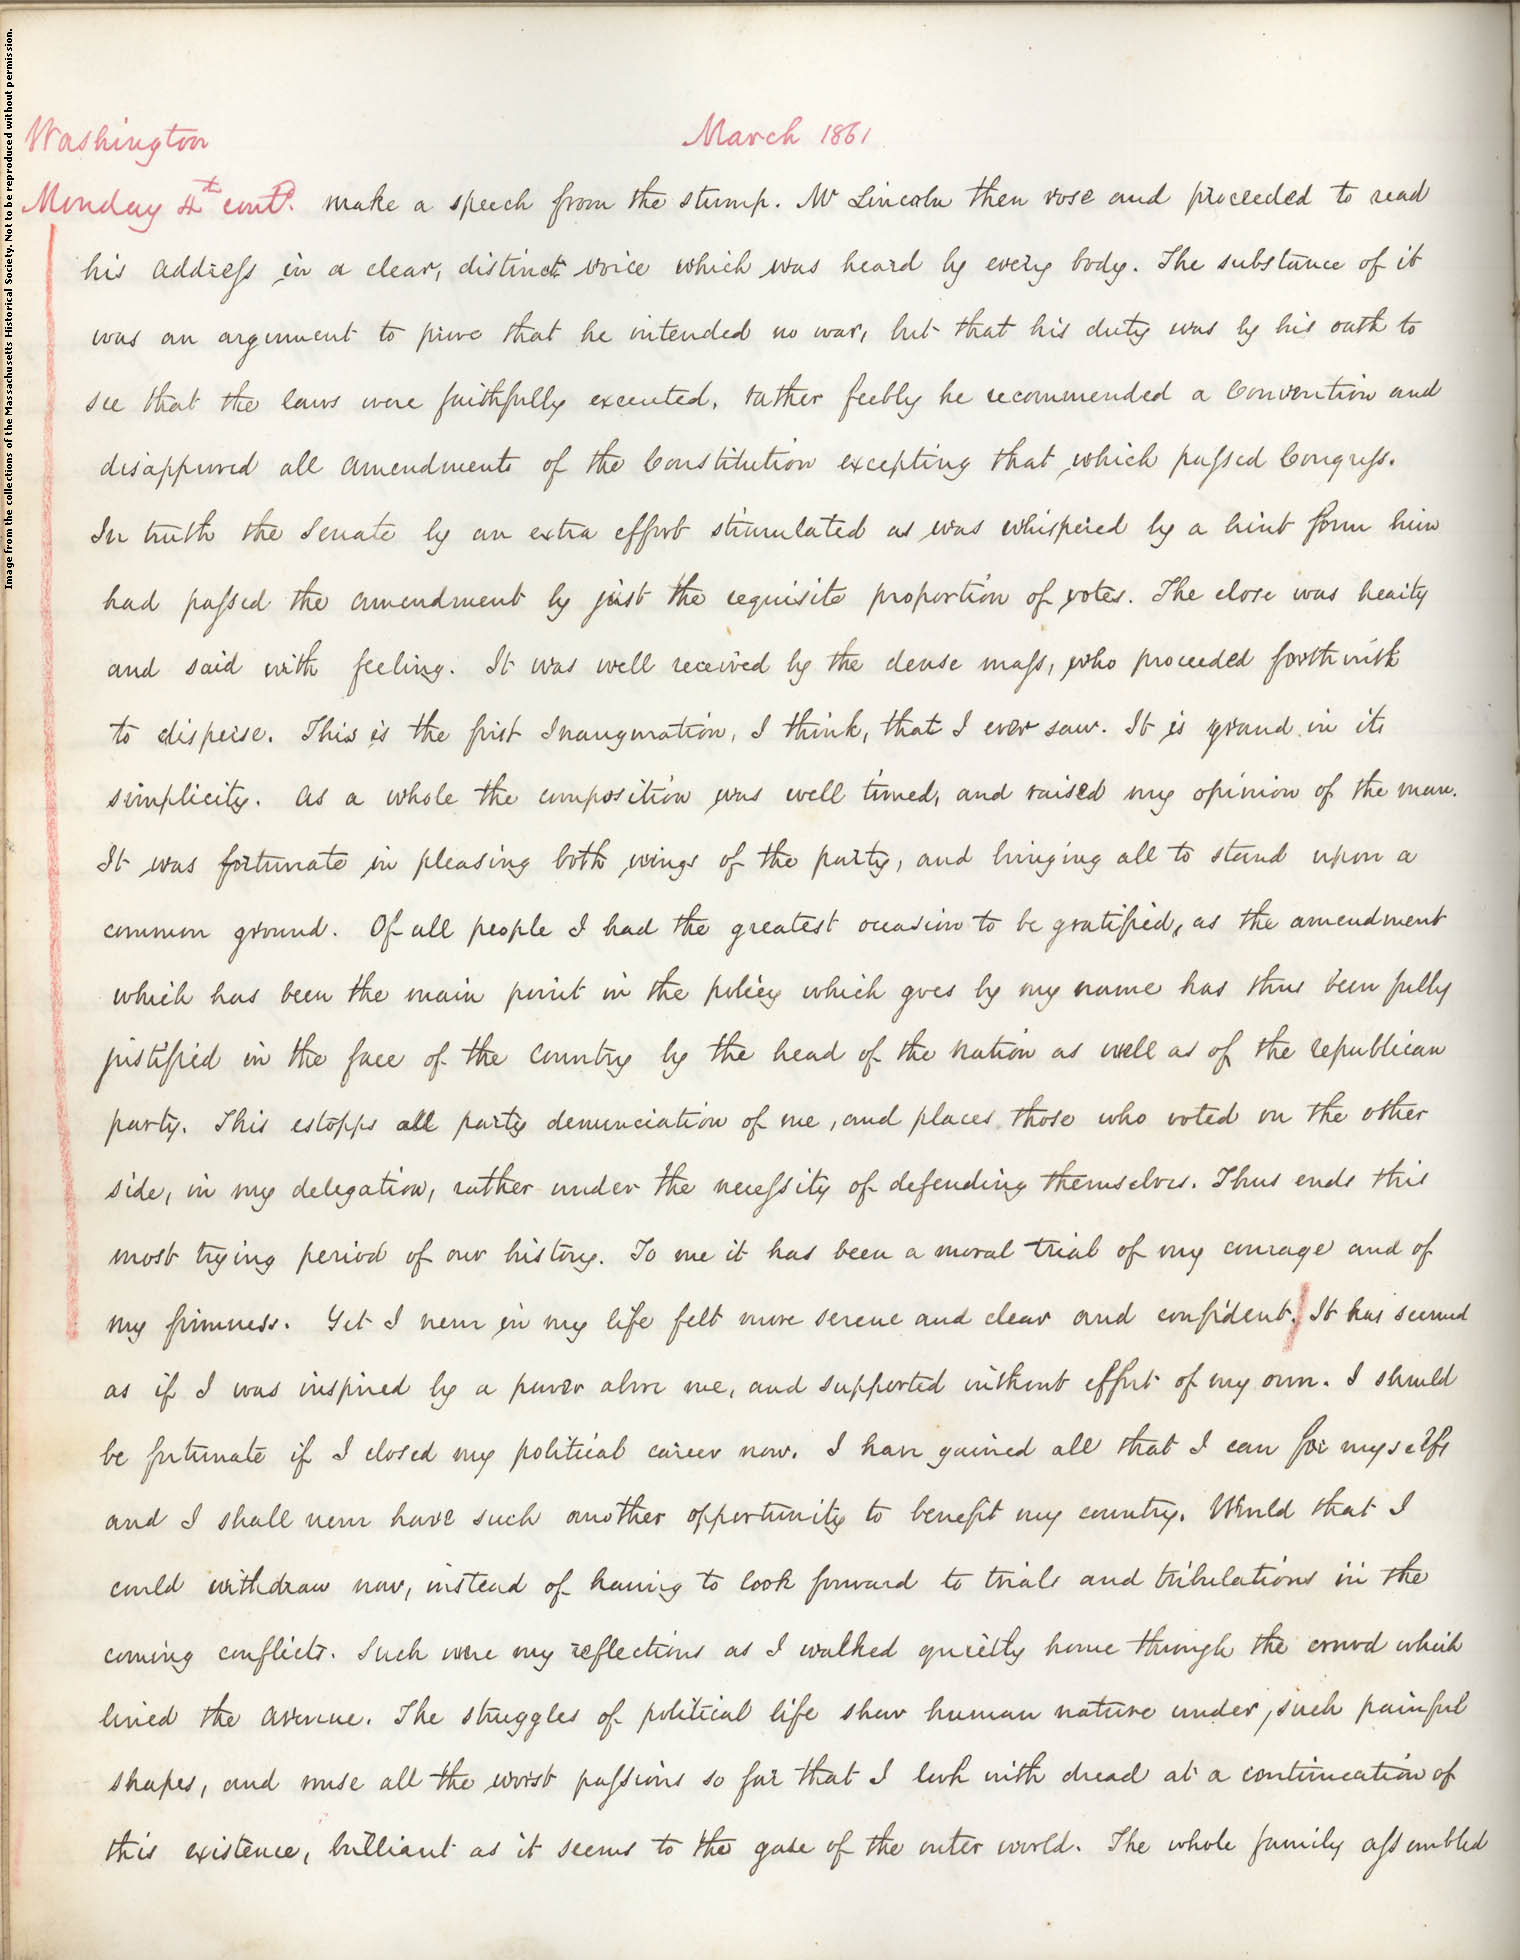 Image from the collections of the Massachusetts Historical Society. Not to be reproduced without permission.
Washington
March 1861
Monday 4th contd. make a speech from the stump. Mr Lincoln then rose and proceeded to read
his address in a clear, distinct voice which was heard by every body. The substance of it
was an argument to prove that he intended no war, but that his duty was by his oath to
see that the laws were faithfully executed. rather feebly he recommended a Convention and
disapproved all amendments of the Constitution excepting that which passed Congress.
In truth the Senate by an extra effort stimulated as was whispered by a hint from him
had passed the amendment by just the requisite proportion of votes. The close was hearty
and said with feeling. It was well received by the dense mass, who proceeded forthwith
to disperse. This is the first Inauguration, I think, that I ever saw. It is grand in its
simplicity. As a whole the composition was well timed, and raised my opinion of the man.
It was fortunate in pleasing both wings of the party, and bringing all to stand upon a
common ground. Of all people I had the greatest occasion to be gratified, as the amendment
which has been the main point in the policy which goes by my name has thus been fully
justified in the face of the Country by the head of the nation as well as of the republican
party. This estopps all party denunciation of me, and places those who voted on the other
side, in my delegation, rather under the necessity of defending themselves. Thus ends this
most trying period of our history. To me it has been a moral trial of my courage and of
my firmness. Yet I never in my life felt more serene and clear and confident. It has seemed
as if I was inspired by a power above me, and supported without effort of my own. I should
be fortunate if I closed my political career now. I have gained all that I can for myself
and I shall never have such another opportunity to benefit my country. Would that I
could withdraw now, instead of having to look forward to trials and tribulations in the
coming conflicts. Such were my reflections as I walked quietly home through the crowd which
lined the avenue. The struggles of political life show human nature under such painful
shapes, and rouse all the worst passions so far that I look with dread at a continuation of
this existence, brilliant as it seems to the gaze of the outer world. The whole family assembled